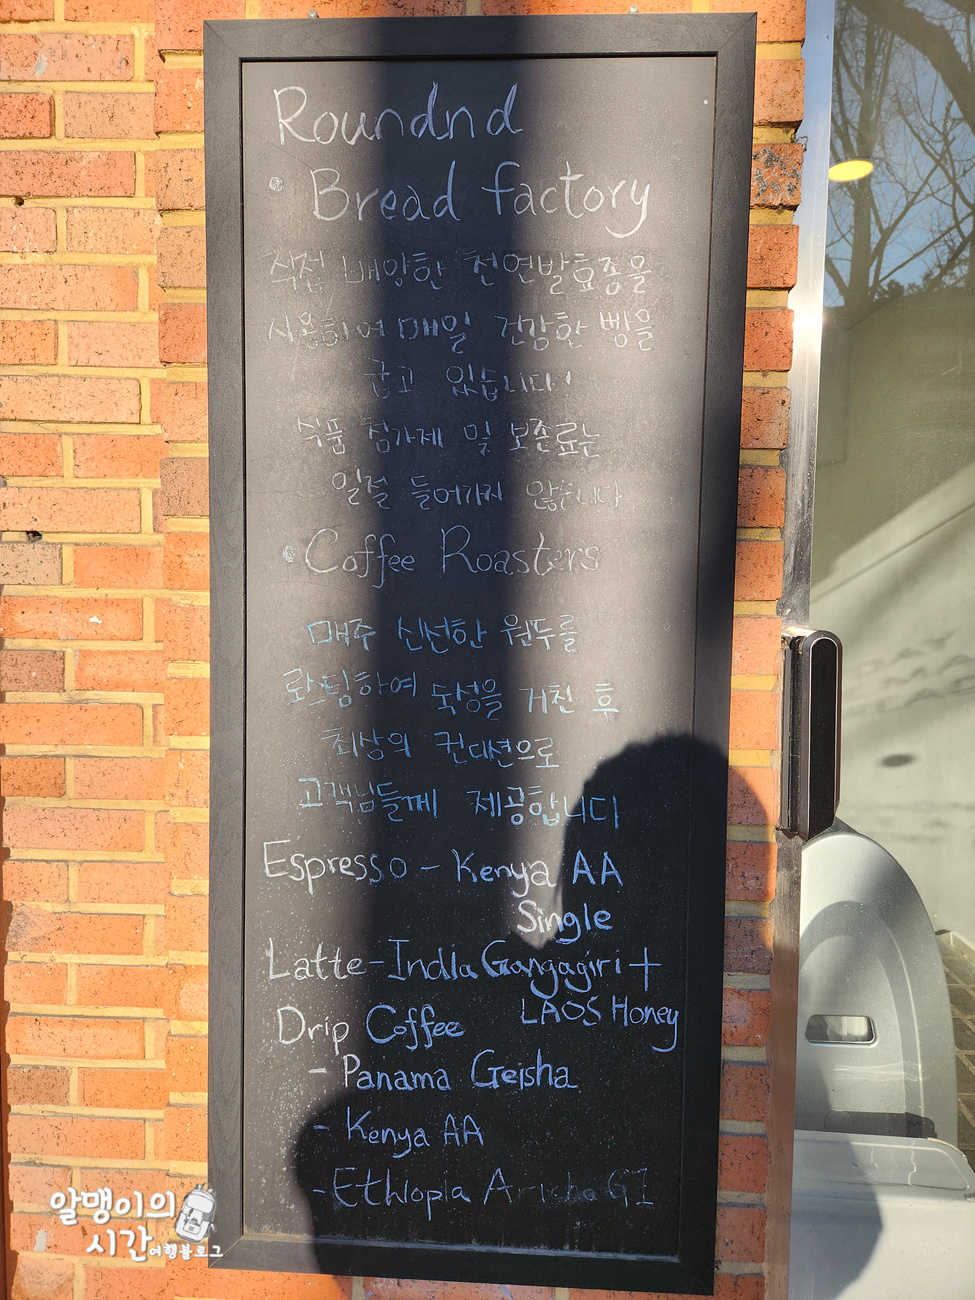 Roundnd
Bread factory
직접 배양한 천연발효종을
사용하여 매일 건강한 빵을
굽고 있습니다!
식품 첨가제 및 보존료는
일절 들어가지 않습니다
Coffee Roasters
매주 신선한 원두를
로스팅하여 숙성을 거친 후
최상의 컨대션으로
고객님들께 제공합니다
Espresso - Kenya AA
Single
Latte - India Gangagiri +
LAOS Honey
Drip Coffee
- Panama Geisha
- Kenya AA
- Ethiopia Aricha G1
알맹이의
시간 여행블로그